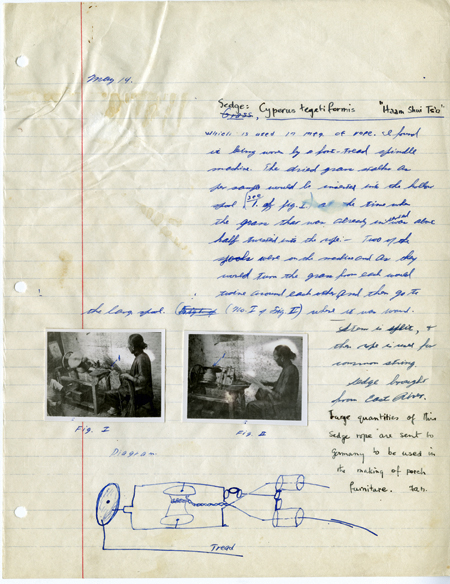 May 14.
Sedge: Cyperus tegetiformis "Haam Shui Ts'o"
Grass,
which is used in mfg. of rope. I found
it being worn by a foot-tread spindle
machine. The dried grass widths as
per sample would be inserted into the hollow
spool of fig. I. at the time when
the grass that was already in was above
half twisted into the rope — Two of the
spools were on the machine and as they
would turn the grass from each would
twine around each other and then go to
the large spool. (No. I of Fig II) where it was wound.
is split, &
this rope is used for
common string.
Sedge brought
from East River.
Large quantities of this
sedge rope are sent to
Germany to be used in
the making of porch
furniture.
Fig. I
Fig. II
Diagram
Tread